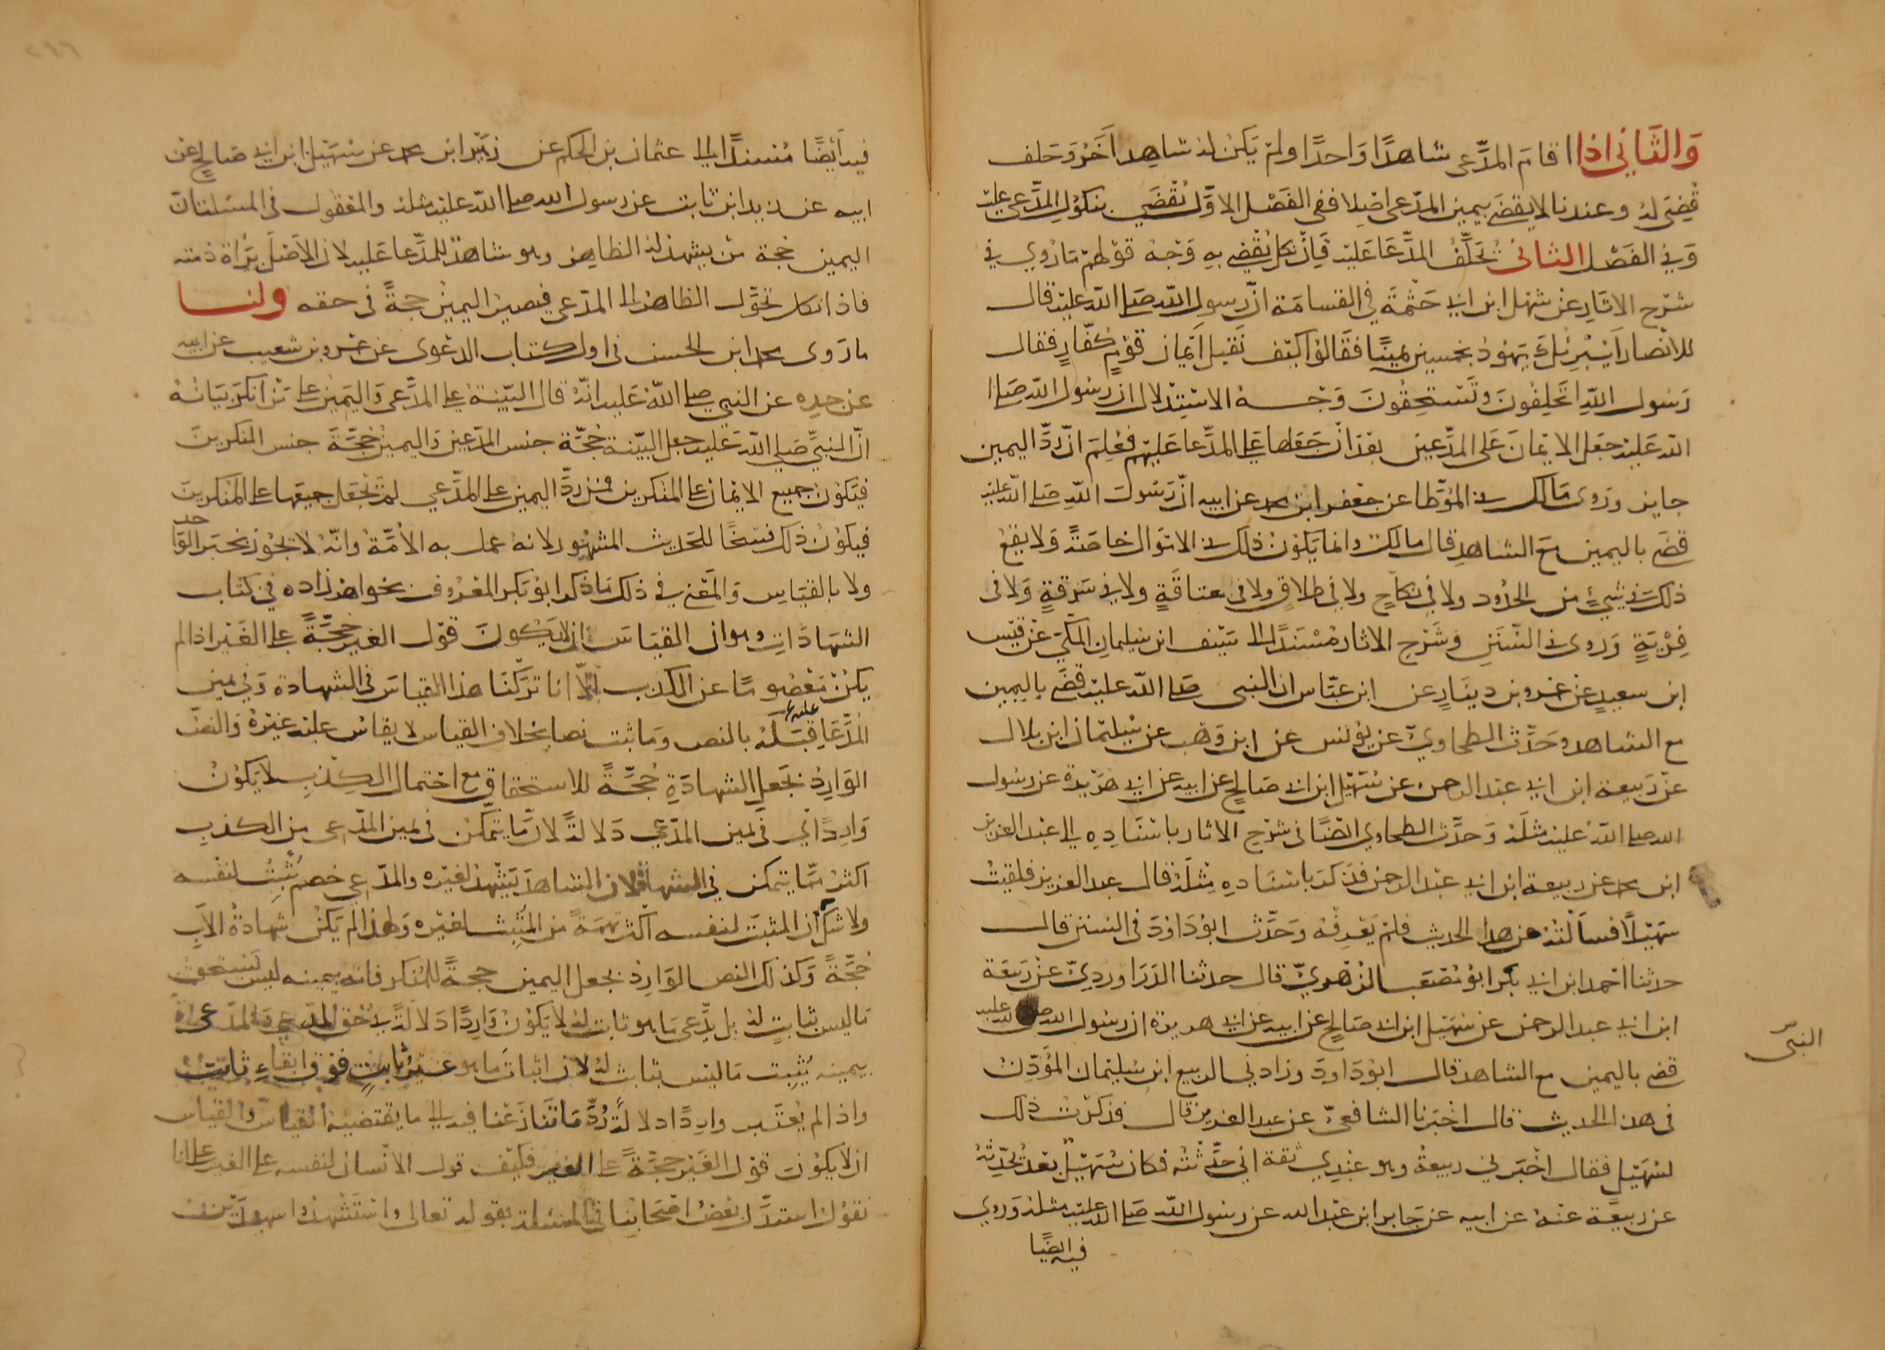 والثاني اذا اقام المدعى شاهدا واحدا ولم يكن له شاهد اخر وحلف
قضى له وعندنا لا يقضى بيمين المدعى اصلا ففى الفصل الاول نقضى بنكول المدعى عليه
وفى الفصل الثانى نحلف المدعا عليه فان نكل نقضى به وجه قولهم ما روي في
شرح الاثار عن سهل ابن ابي حثمة في القسامة ان رسول الله صلى الله عليه قال
للانصار أيبرئك يهود بخمسين يمينا فقالوا كيف نقبل ايمان قوم كفار فقال
رسول الله اتحلفون وتستحقون وجه الاستدلال ان رسول الله صلى
الله عليه جعل الايمان على المدعين بعد ان جعلها على المدعا عليهم فعلم ان رد اليمين
جايز وروى مالك في الموطا عن جعفر ابن محمد عن ابيه ان رسول الله صلى الله عليه
قضى باليمين مع الشاهد قال مالك وانما يكون ذلك في الاموال خاصة ولا يقع
ذلك في شيء من الحدود ولا في نكاح ولا في طلاق ولا في عتاقة ولا في سرقة ولا فى
فرية وروى في السنن وشرح الاثار مسندا الى سيف ابن سليمان المكي عن قيس
ابن سعيد عن عمرو بن دينار عن ابن عباس ان النبى صلى الله عليه قضى باليمين
مع الشاهد وحدث الطحاوي عن يونس عن ابن وهب عن سليمان ابن بلال
عن ربيعة ابن ابي عبد الرحمن عن سهيل ابن ابي صالح عن ابيه عن ابي هريرة عن رسول
الله صلى الله عليه مثله وحدث الطحاوي ايضا في شرح الاثار باسناده الى عبد العزيز
ابن محمد عن ربيعة ابن ابي عبد الرحمن فذكر باسناده مثله قال عبد العزيز فلقيت
سهيلا فسألته عن هذا الحديث فلم يعرفه وحدث ابو داود فى السنن قال
حدثنا احمد ابن ابي بكر ابو مصعب الزهري قال حدثنا الدراوردي عن ربيعة
ابن ابي عبد الرحمن عن سهيل ابن ابي صالح عن ابيه عن ابي هريرة ان رسول الله صلى الله عليه
النبى
قضى باليمين مع الشاهد قال ابو داود وزادني الربيع ابن سليمان المؤذن
فى هذا الحديث قال اخبرنا الشافعي عن عبد العزيز قال فذكرت ذلك
لسهيل فقال اخبرني ربيعة وهو عندي ثقة اني حدثته فكان سهيل بعد يحدثه
عن ربيعة عنه عن ابيه عن جابر ابن عبد الله عن رسول الله صلى الله عليه مثله وروي
فيه ايضا
فيه أيضا مسندا الى عثمان بن الحكم عن زهير ابن محمد عن سهيل ابن ابي صالح عن
ابيه عن زيد ابن ثابت عن رسول الله صلى الله عليه مثله والمعقول فى المسئلتان
اليمين حجة من يشهد له الظاهر وهو شاهد للمدعا عليه لان الاصل براة ذمته
فاذا نكل تحول الظاهر الى المدعى فيصير اليمين حجة فى حقه ولنا
ما روى محمد ابن الحسن فى اول كتاب الدعوى عن عمرو بن شعيب عن ابيه
عن جده عن النبي صلى الله عليه انه قال البينة على المدعى واليمين على من انكر بيانه
ان النبي صلى الله عليه جعل البينة حجة جنس المدعين واليمين حجة جنس المنكرين
فيكون جميع الايمان على المنكرين ومن رد اليمين على المدعي لم يجعل جميعها على المنكرين
فيكون ذلك فسخا للحديث المشهور لانه عمل به الأمة وانه لا يجوز بخبر الواحد
ولا بالقياس والمعنى في ذلك ما ذكر ابو بكر المعروف بخواهر زاده في كتاب
الشهادات وهو ان القياس ان لا يكون قول الغير حجة على الغير اذا لم
يكن معصوما عن الكذب الا انا تركنا هذا القياس فى الشهادة وفي يمين
المدعا عليه قبله بالنص وما ثبت نصا بخلاف القياس لا يقاس عليه غيره والنص
الوارد بجعل الشهادة حجة للاستحقاق مع احتمال الكذب لا يكون
واردا في يمين المدعي دلالة لان ما يتمكن فى يمين المدعى من الكذب
اكثر مما يتمكن في الشهادة لان الشاهد يشهد لغيره والمدعي خصم يثبت لنفسه
ولا شك ان المثبت لنفسه اكثر تهمة من المثبت لغيره ولهذا لم يكن شهادة الأب
حجة وكذلك النص الوارد بجعل اليمين حجة للمنكر فانه بيمينه ليس يستحق
ما ليس ثابت له بل يدعى ما هو ثابت له لا يكون واردا دلالة في حق المدعي والمدعى
بيمينه يثبت ما ليس بثابت له لان اثبات ما هو غير ثابت فوق ابقاء ثابت
واذا لم يعتبر واردا دلالة رد ما تنازعنا فيه الى ما يقتضيه القياس والقياس
ان لا يكون قول الغير حجة على الغير فكيف قول الانسان لنفسه على الغير على انا
نقول استدل بعض اصحابنا في المسئلة بقوله تعالى واستشهدوا شهيدين